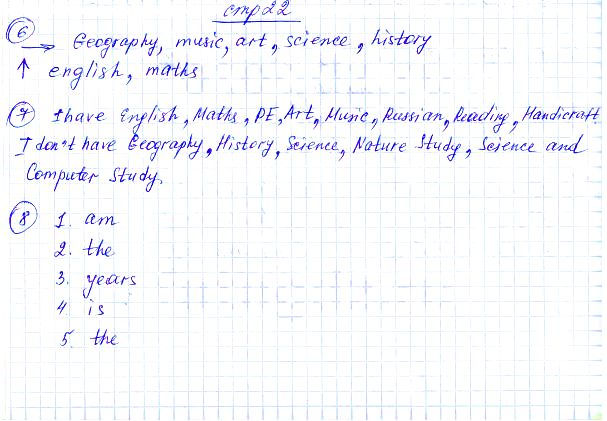 стр 22
6
→ Geography, music, art, science, history
↑ english, maths
7 I have English, Maths, PE, Art, Music, Russian, Reading, Handicraft
I don't have Geography, History, Science, Nature Study, Science and
Computer Study.
8 1. am
2. the
3. years
4 is
5. the